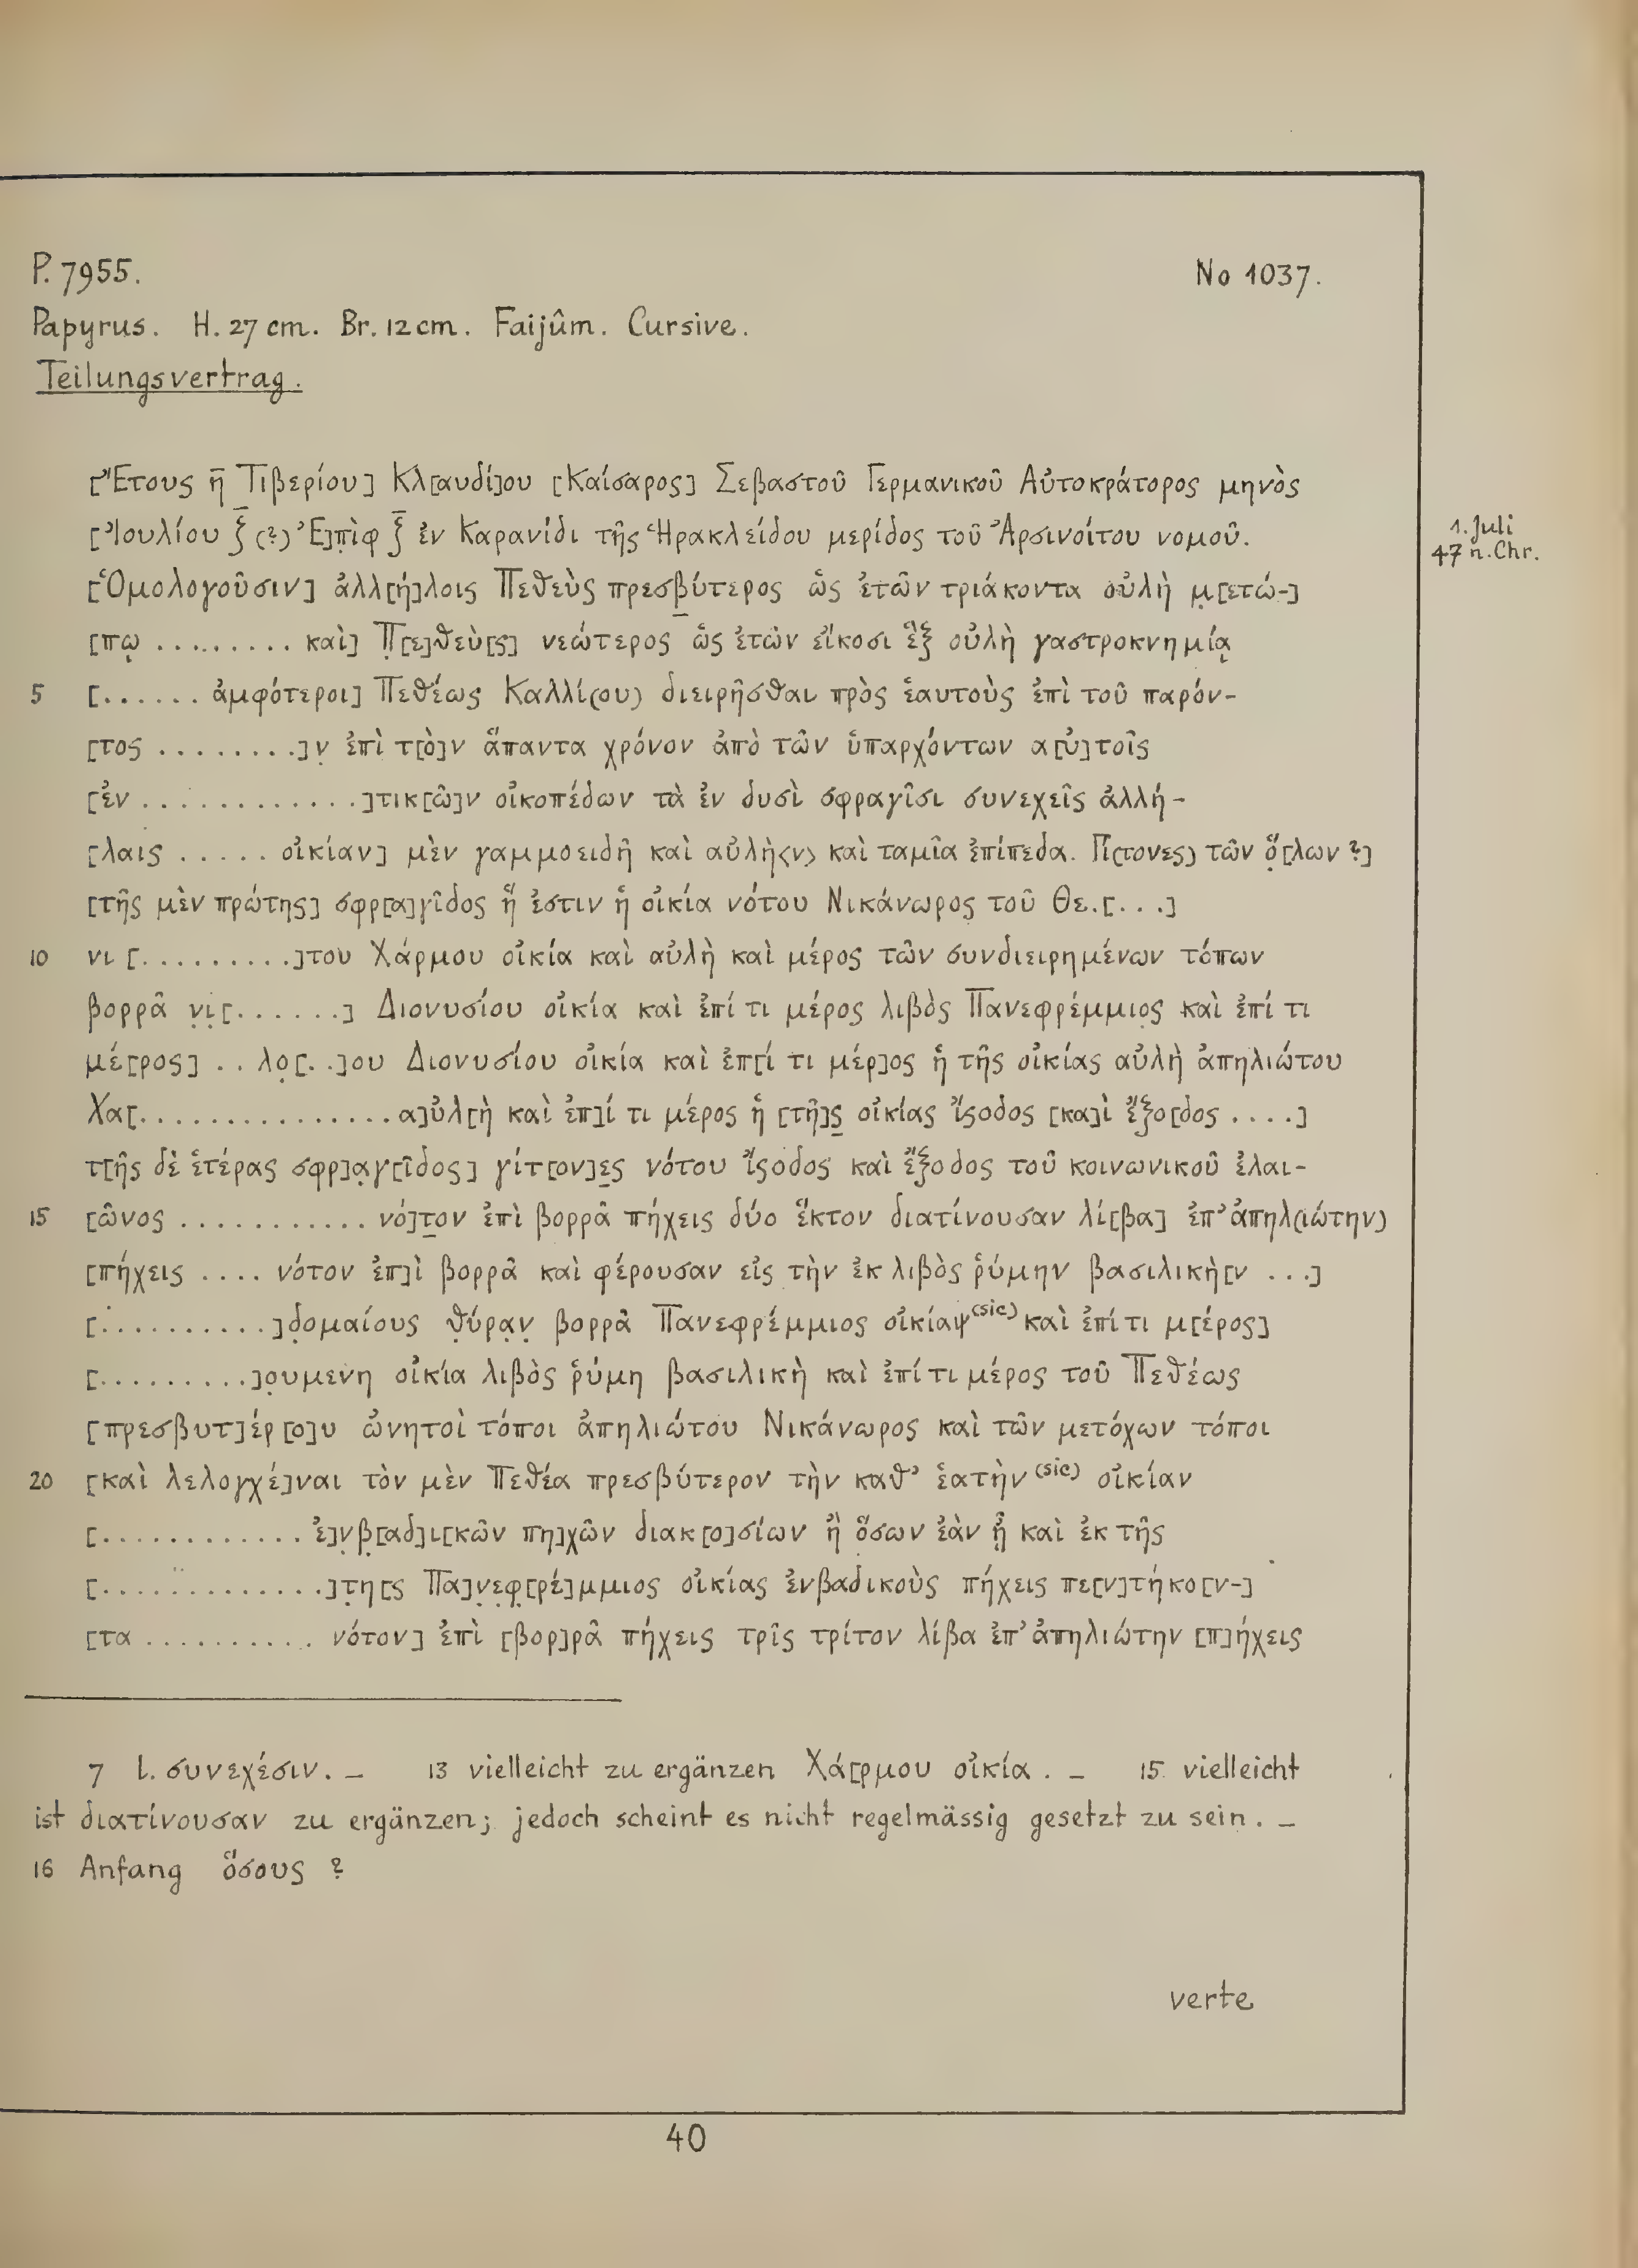 P. 7955. No 1037.
Papyrus. H. 27 cm. Br. 12 cm. Faijûm. Cursive.
Teilungsvertrag.
[Ἔτους η̅ Τιβερίου] Κλ[αυδί]ου [Καίσαρος] Σεβαστοῦ Γερμανικοῦ Αὐτοκράτορος μηνὸς
[Ἰουλίου ζ̅ (?) Ἐ]π̣ὶφ ζ̅ ἐν Καρανίδι τῆς Ἡρακλείδου μερίδος τοῦ Ἀρσινοίτου νομοῦ.
1. Juli
47 n. Chr.
[Ὁμολογοῦσιν] ἀλλ[ή]λοις Πεθεὺς πρεσβύτερος ὡς ἐτῶν τριάκοντα οὐλὴ μ̣[ετώ-]
[πῳ ......... καὶ] Π̣[ε]θεὺ[ς] νεώτερος ὡς ἐτῶν εἴκοσι ἓξ οὐλὴ γαστροκνημίᾳ
5 [...... ἀμφότεροι] Πεθέως Καλλί(ου) διειρῆσθαι πρὸς ἑαυτοὺς ἐπὶ τοῦ παρόν-
[τος ........]ν̣ ἐπὶ τ[ὸ]ν ἅπαντα χρόνον ἀπὸ τῶν ὑπαρχόντων α[ὐ]τοῖς
[ἐν .............]τικ[ῶ]ν οἰκοπέδων τὰ ἐν δυσὶ σφραγῖσι συνεχεῖς ἀλλή-
[λαις ..... οἰκίαν] μὲν γαμμοειδῆ καὶ αὐλὴ<ν> καὶ ταμῖα ἐπίπεδα. Γί(τονες) τῶν ὅ̣[λων ?]
[τῆς μὲν πρώτης] σφρ[α]γῖδος ἥ ἐστιν ἡ οἰκία νότου Νικάνωρος τοῦ Θε.[...]
10 νι [.........]του Χάρμου οἰκία καὶ αὐλὴ καὶ μέρος τῶν συνδιειρημένων τόπων
βορρᾶ ν̣ι̣[......] Διονυσίου οἰκία καὶ ἐπί τι μέρος λιβὸς Πανεφρέμμιος καὶ ἐπί τι
μέ[ρος] .. λο̣[..]ου Διονυσίου οἰκία καὶ ἐπ[ί τι μέρ]ος ἡ τῆς οἰκίας αὐλὴ ἀπηλιώτου
Χα[...............α]ὐλ[ὴ καὶ ἐπ]ί τι μέρος ἡ [τῆ]ς̣ οἰκίας ἴσοδος [κα]ὶ ἔξο[δος ....]
τ[ῆς δὲ ἑτέρας σφρ]α̣γ[ῖδος] γίτ[ον]ε̣ς νότου ἴσοδος καὶ ἔξοδος τοῦ κοινωνικοῦ ἐλαι-
15 [ῶνος ........... νό]τ̣ον ἐπὶ βορρᾶ πήχεις δύο ἕκτον διατίνουσαν λί[βα] ἐπ᾽ ἀπηλ(ιώτην)
[πήχεις .... νότον ἐπ]ὶ βορρᾶ καὶ φέρουσαν εἰς τὴν ἐκ λιβὸς ῥύμην βασιλικὴ[ν ...]
[...........]δ̣ομαίους θ̣ύρα̣ν̣ βορρᾶ Πανεφρέμμιος οἰκίαψ (sic) καὶ ἐπί τι μ[έρος]
[..........]ο̣υμενη οἰκία λιβὸς ῥύμη βασιλικὴ καὶ ἐπί τι μέρος τοῦ Πεθέως
[πρεσβυτ]έρ[ο]υ ὠνητοὶ τόποι ἀπηλιώτου Νικάνωρος καὶ τῶν μετόχων τόποι
20 [καὶ λελογχέ]ναι τὸν μὲν Πεθέα πρεσβύτερον τὴν καθ᾽ ἑατὴν (sic) οἰκίαν
[............ ἐ]ν̣β̣[αδ]ι[κῶν πη]χῶν διακ[ο]σίων ἢ ὅσων ἐὰν ᾖ καὶ ἐκ τῆς
[..............]τ̣η[ς Πα]ν̣ε̣φ̣[ρέ]μμιος οἰκίας ἐνβαδικοὺς πήχεις πε[ν]τήκο[ν-]
[τα .......... νότον] ἐπὶ [βορ]ρᾶ πήχεις τρῖς τρίτον λίβα ἐπ᾽ ἀπηλιώτην [π]ήχεις
7 l. συνεχέσιν. — 13 vielleicht zu ergänzen Χά[ρμου οἰκία. — 15 vielleicht
ist διατίνουσαν zu ergänzen; jedoch scheint es nicht regelmässig gesetzt zu sein. —
16 Anfang ὅσους ?
verte
40